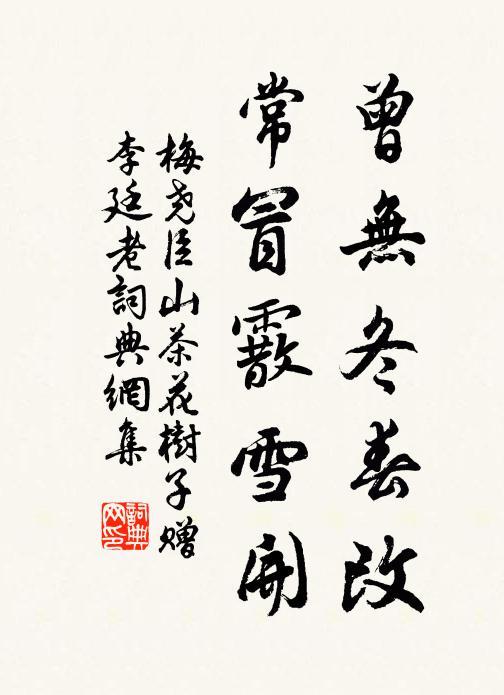 曾無冬春改
常冒霰雪開
梅尧臣山茶花樹子贈
李廷老詞典網集
詞典网印